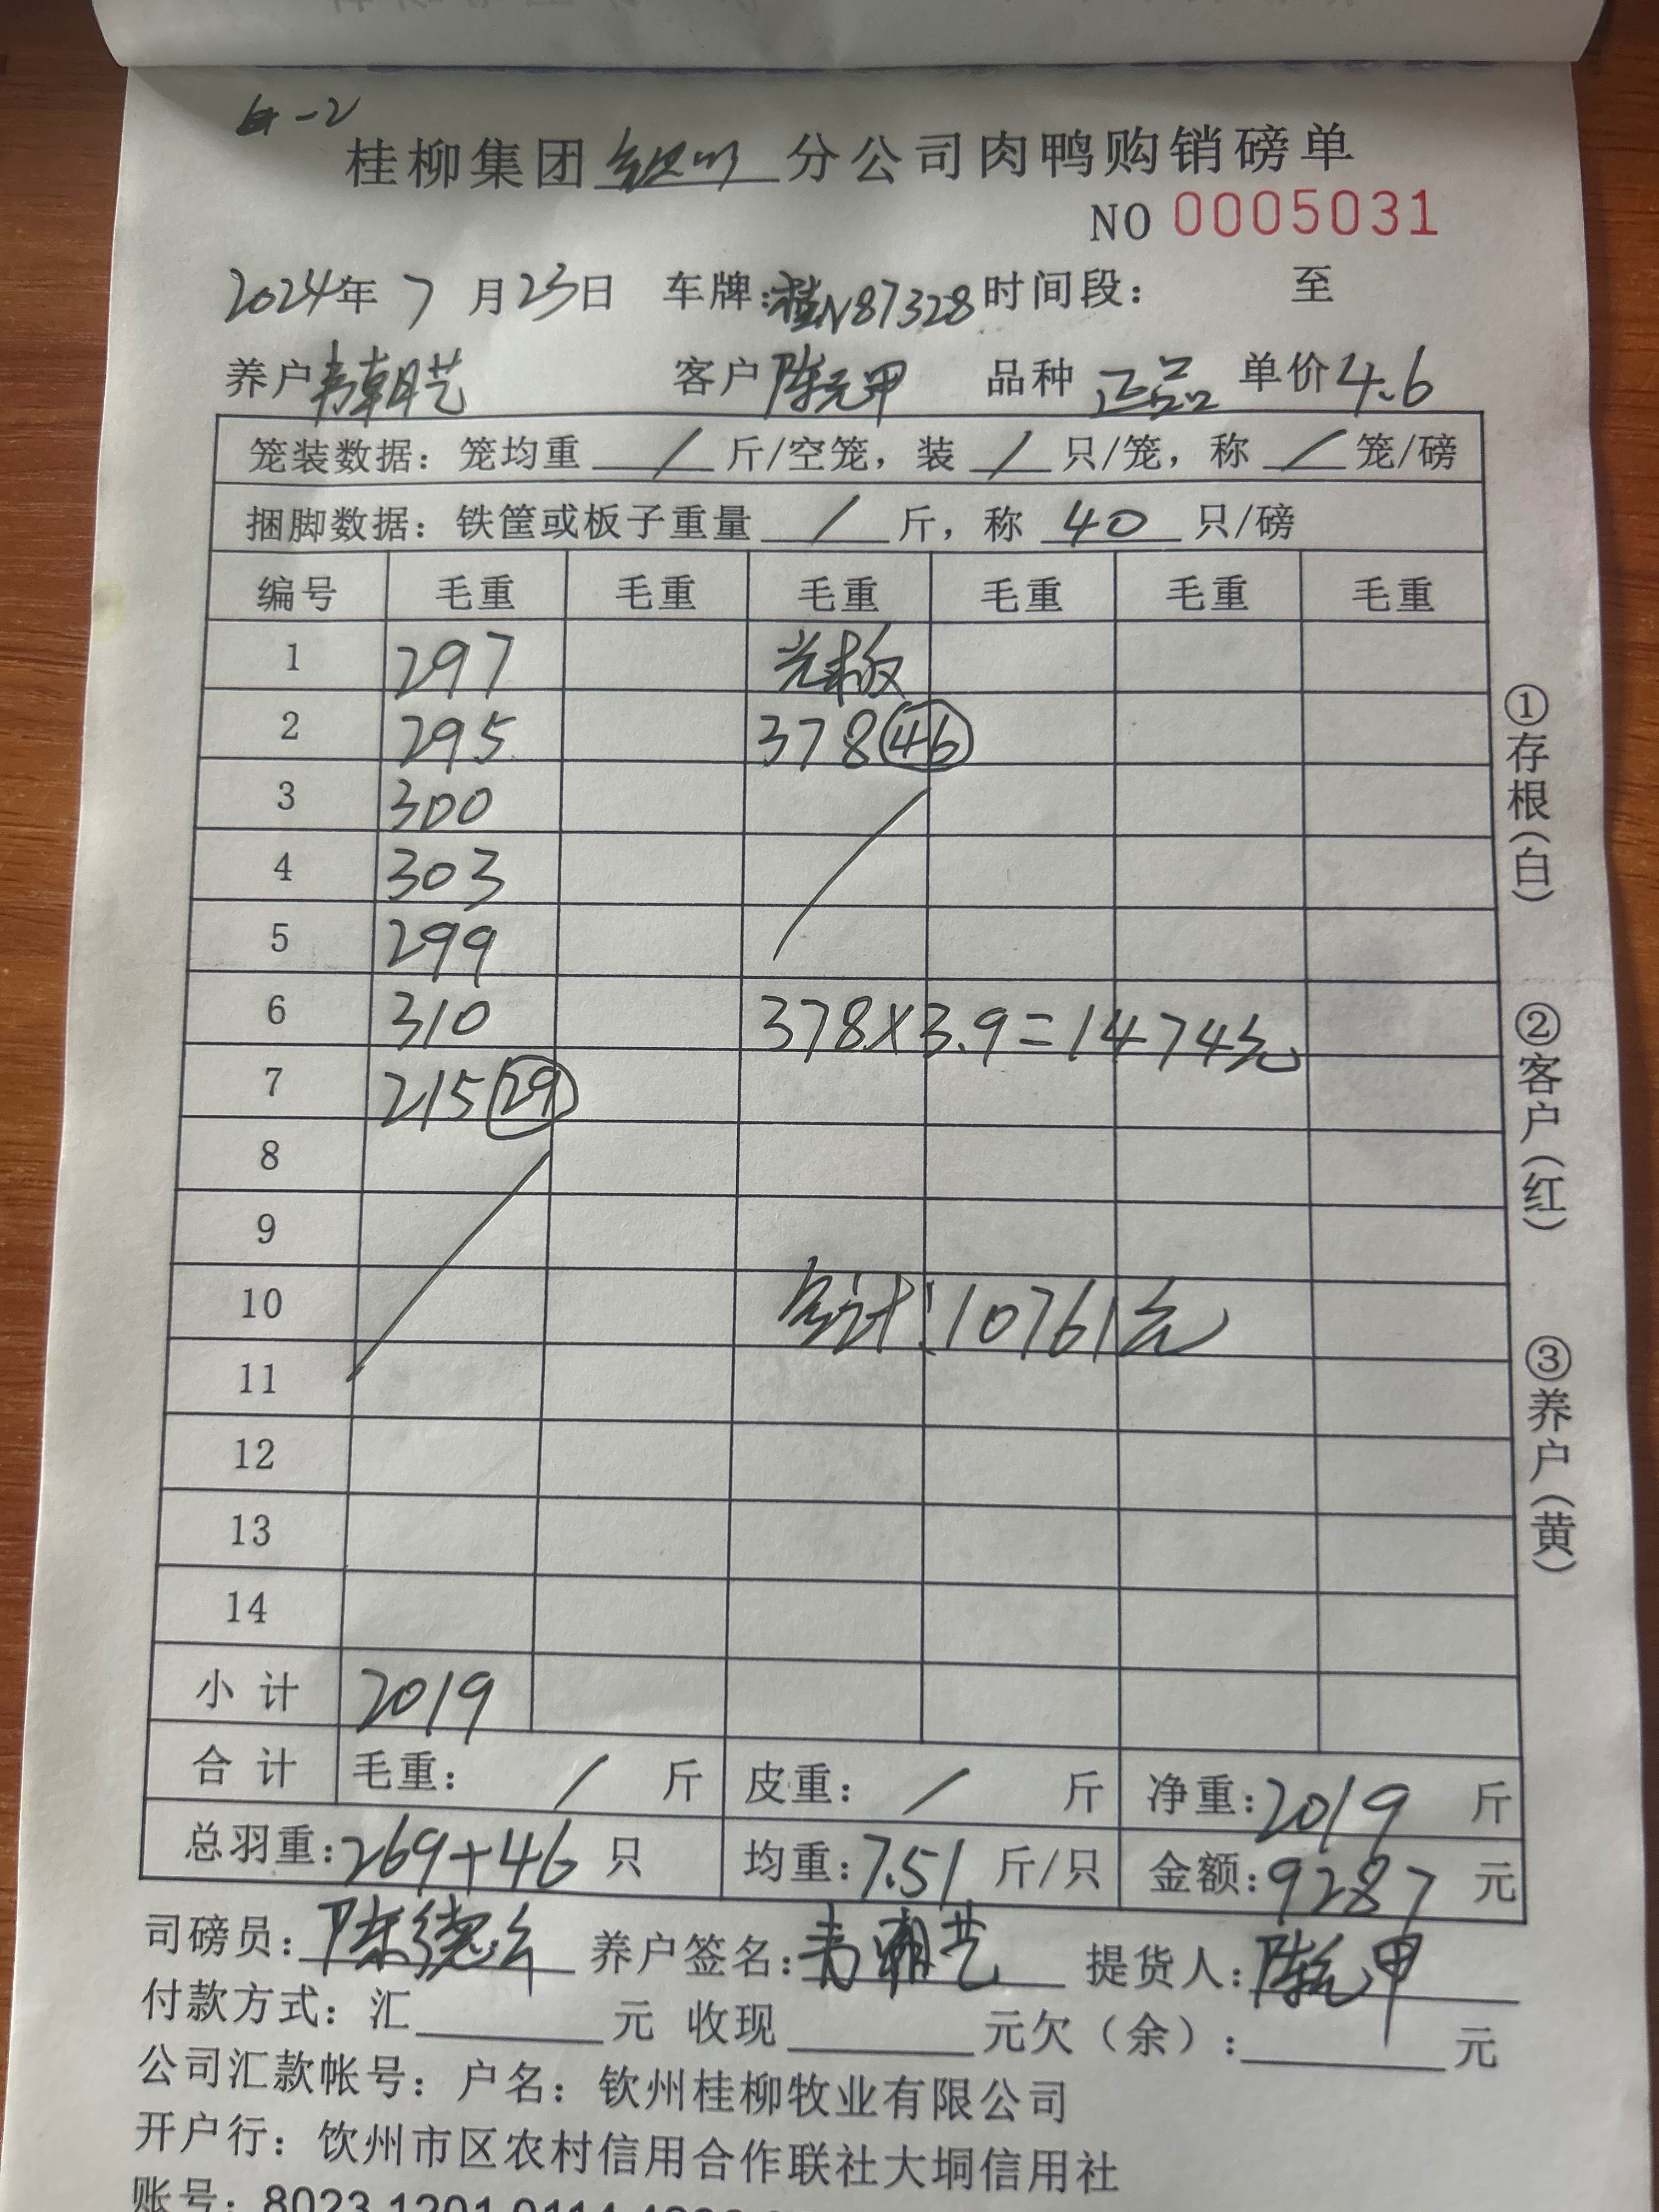 桂柳集团 分公司肉鸭购销磅单
NO 0005031
2024年 7 月 23日 车牌:桂N87328 时间段: 至
养户 韦朝艺 客户 陈元甲 品种 正品 单价 4.6
笼装数据: 笼均重 / 斤/空笼, 装 / 只/笼, 称 / 笼/磅
捆脚数据: 铁筐或板子重量 / 斤, 称 40 只/磅
编号 毛重 毛重 毛重 毛重 毛重 毛重
1 297 光板
2 295 378 46
3 300
4 303
5 299
6 310 378×3.9=1474元
7 215 29
8
9
10 合计:10761元
11
12
13
14
小计 2019
合计 毛重: / 斤 皮重: / 斤 净重:2019 斤
总羽重:269+46 只 均重:7.51 斤/只 金额:9287 元
司磅员: 养户签名:韦朝艺 提货人:陈元甲
付款方式: 汇 元 收现 元欠(余): 元
公司汇款帐号: 户名: 钦州桂柳牧业有限公司
开户行: 钦州市区农村信用合作联社大垌信用社
账号: 8023 1201 0114
①存根(白)
②客户(红)
③养户(黄)